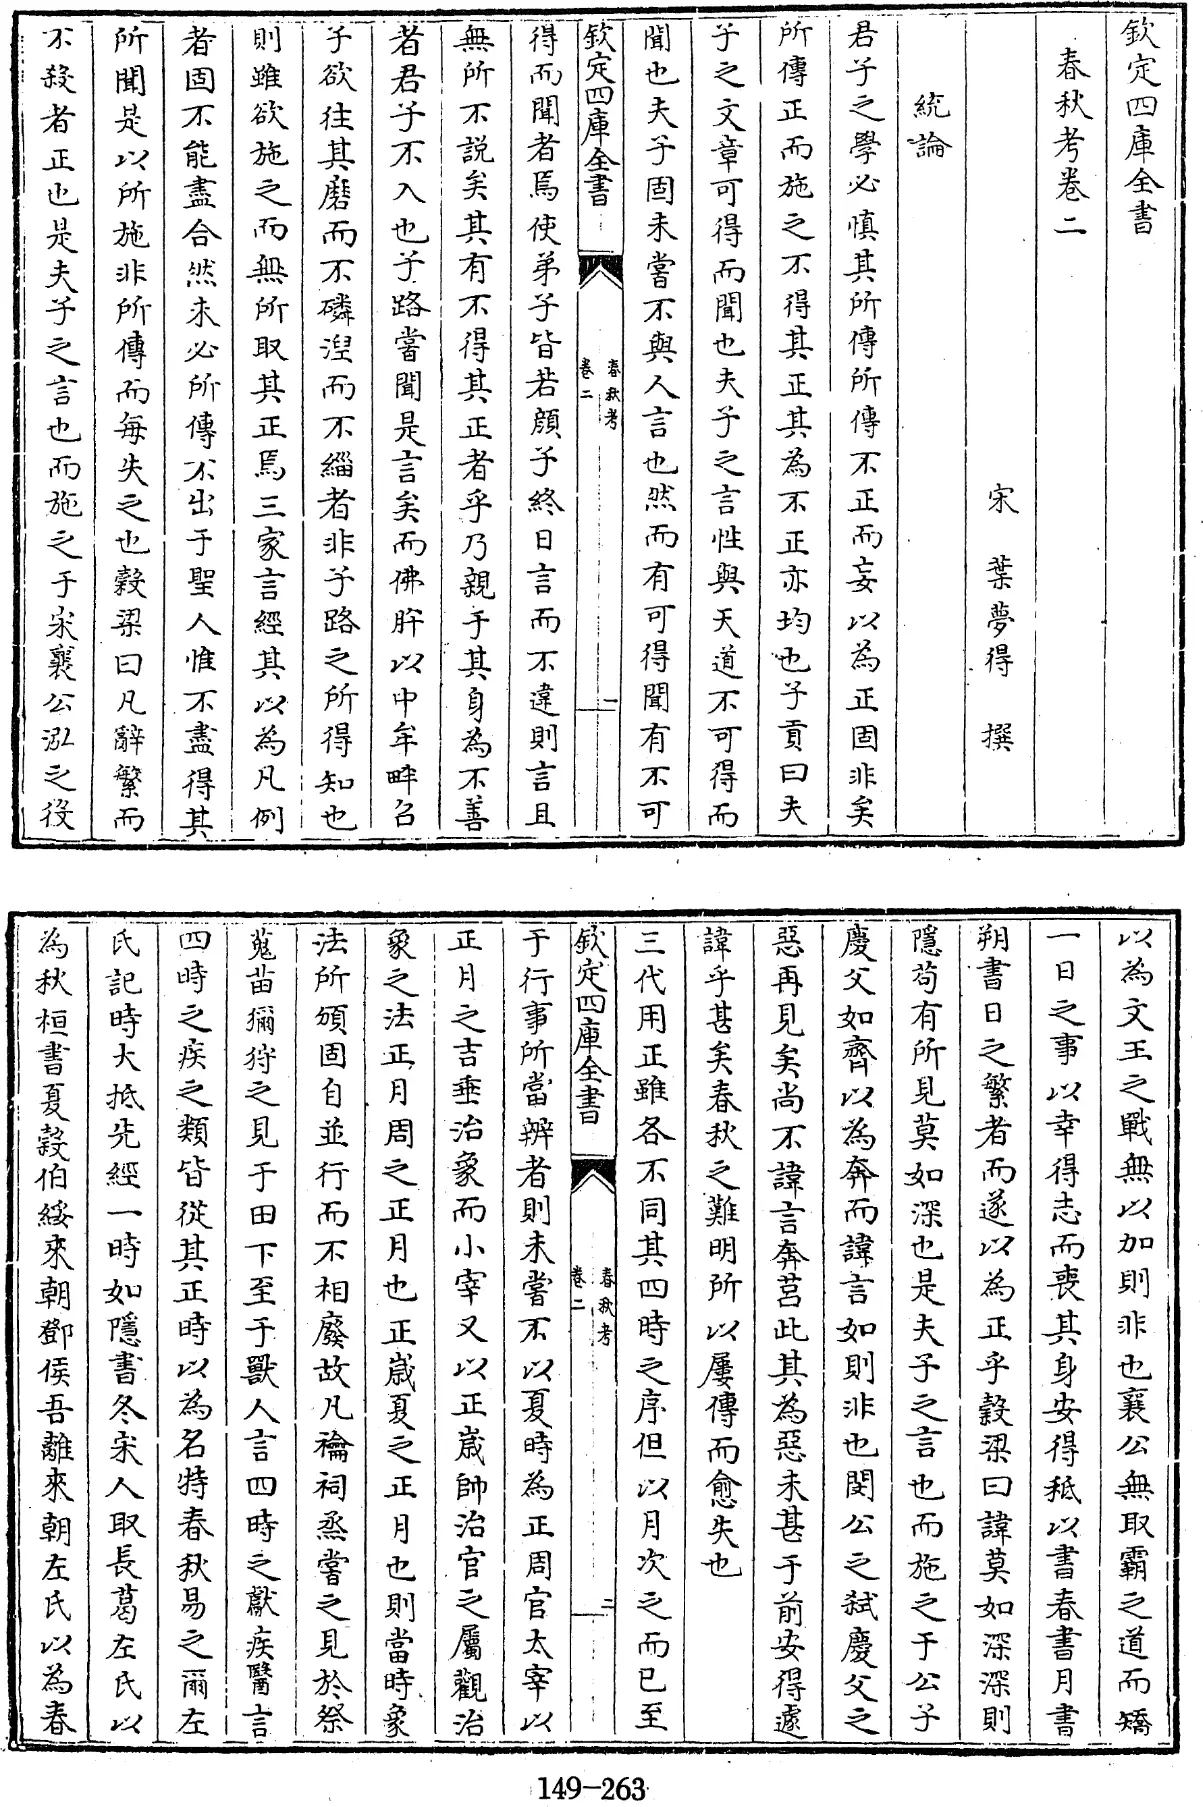 欽定四庫全書
春秋考卷二
宋 葉夢得 撰
統論
君子之學必慎其所傳所傳不正而妄以為正固非矣
所傳正而施之不得其正其為不正亦均也子貢曰夫
子之文章可得而聞也夫子之言性與天道不可得而
聞也夫子固未嘗不與人言也然而有可得聞有不可
欽定四庫全書
春秋考
卷二
一
得而聞者焉使弟子皆若顔子終日言而不違則言且
無所不説矣其有不得其正者乎乃親于其身為不善
者君子不入也子路嘗聞是言矣而佛肸以中牟畔召
子欲往其磨而不磷湼而不緇者非子路之所得知也
則雖欲施之而無所取其正焉三家言經其以為凡例
者固不能盡合然未必所傳不出于聖人惟不盡得其
所聞是以所施非所傳而每失之也穀梁曰凡辭繁而
不殺者正也是夫子之言也而施之于宋襄公泓之役
以為文王之戰無以加則非也襄公無取霸之道而矯
一日之事以幸得志而喪其身安得秪以書春書月書
朔書日之繁者而遂以為正乎穀梁曰諱莫如深深則
隱苟有所見莫如深也是夫子之言也而施之于公子
慶父如齊以為奔而諱言如則非也閔公之弑慶父之
惡再見矣尚不諱言奔莒此其為惡未甚于前安得遽
諱乎甚矣春秋之難明所以屢傳而愈失也
三代用正雖各不同其四時之序但以月次之而已至
欽定四庫全書
春秋考
卷二
二
于行事所當辨者則未嘗不以夏時為正周官太宰以
正月之吉垂治象而小宰又以正歲帥治官之屬觀治
象之法正月周之正月也正歲夏之正月也則當時象
法所頒固自並行而不相廢故凡禴祠烝嘗之見於祭
蒐苗獮狩之見于田下至于獸人言四時之獻疾醫言
四時之疾之類皆從其正時以為名特春秋易之爾左
氏記時大抵先經一時如隱書冬宋人取長葛左氏以
為秋桓書夏穀伯綏來朝鄧侯吾離來朝左氏以為春
149-263